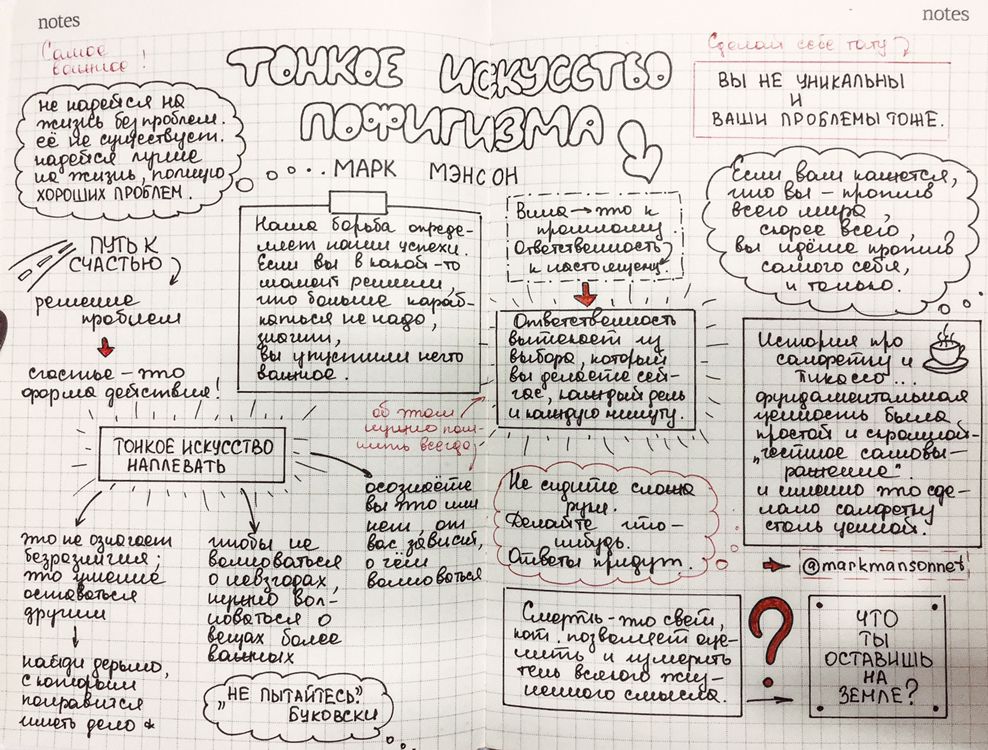 notes
notes
Самое
важное!
не надейся на
жизнь без проблем.
её не существует.
надейся лучше
на жизнь, полную
ХОРОШИХ ПРОБЛЕМ.
ТОНКОЕ ИСКУССТВО
ПОФИГИЗМА
...МАРК МЭНСОН
Сделай себе тату
ВЫ НЕ УНИКАЛЬНЫ
И
ВАШИ ПРОБЛЕМЫ ТОЖЕ.
ПУТЬ К
СЧАСТЬЮ
решение
проблем
счастье – это
форма действия!
Наша борьба опреде-
ляет наши успехи.
Если вы в какой-то
момент решили,
что больше караб-
каться не надо,
значит,
вы упустили нечто
важное.
Вина → это к
прошлому.
Ответственность
к настоящему.
Ответственность
вытекает из
выбора, который
вы делаете сей-
час, каждый день
и каждую минуту.
об этом
нужно пом-
нить всегда
Если вам кажется,
что вы – против
всего мира,
скорее всего,
вы идёте против
самого себя,
и только.
История про
салфетку и
Пикассо...
фундаментальная
ценность была
простой и скромной-
"честное самовы-
ражение".
и именно это сде-
лало салфетку
столь ценной.
@markmansonnet
ТОНКОЕ ИСКУССТВО
НАПЛЕВАТЬ
это не означает
безразличия;
это умение
оставаться
другим
найди дерьмо,
с которым
понравится
иметь дело *
чтобы не
волноваться
о невзгодах,
нужно вол-
новаться о
вещах более
важных
осознаёте
вы это или
нет, от
вас зависит,
о чём
волноваться
„НЕ ПЫТАЙТЕСЬ"
БУКОВСКИ
Не сидите сложа
руки.
Делайте что-
нибудь.
Ответы придут.
Смерть – это свет,
кот. позволяет оце-
нить и измерить
тень всякого жиз-
ненного смысла.
?
ЧТО
ТЫ
ОСТАВИШЬ
НА
ЗЕМЛЕ?